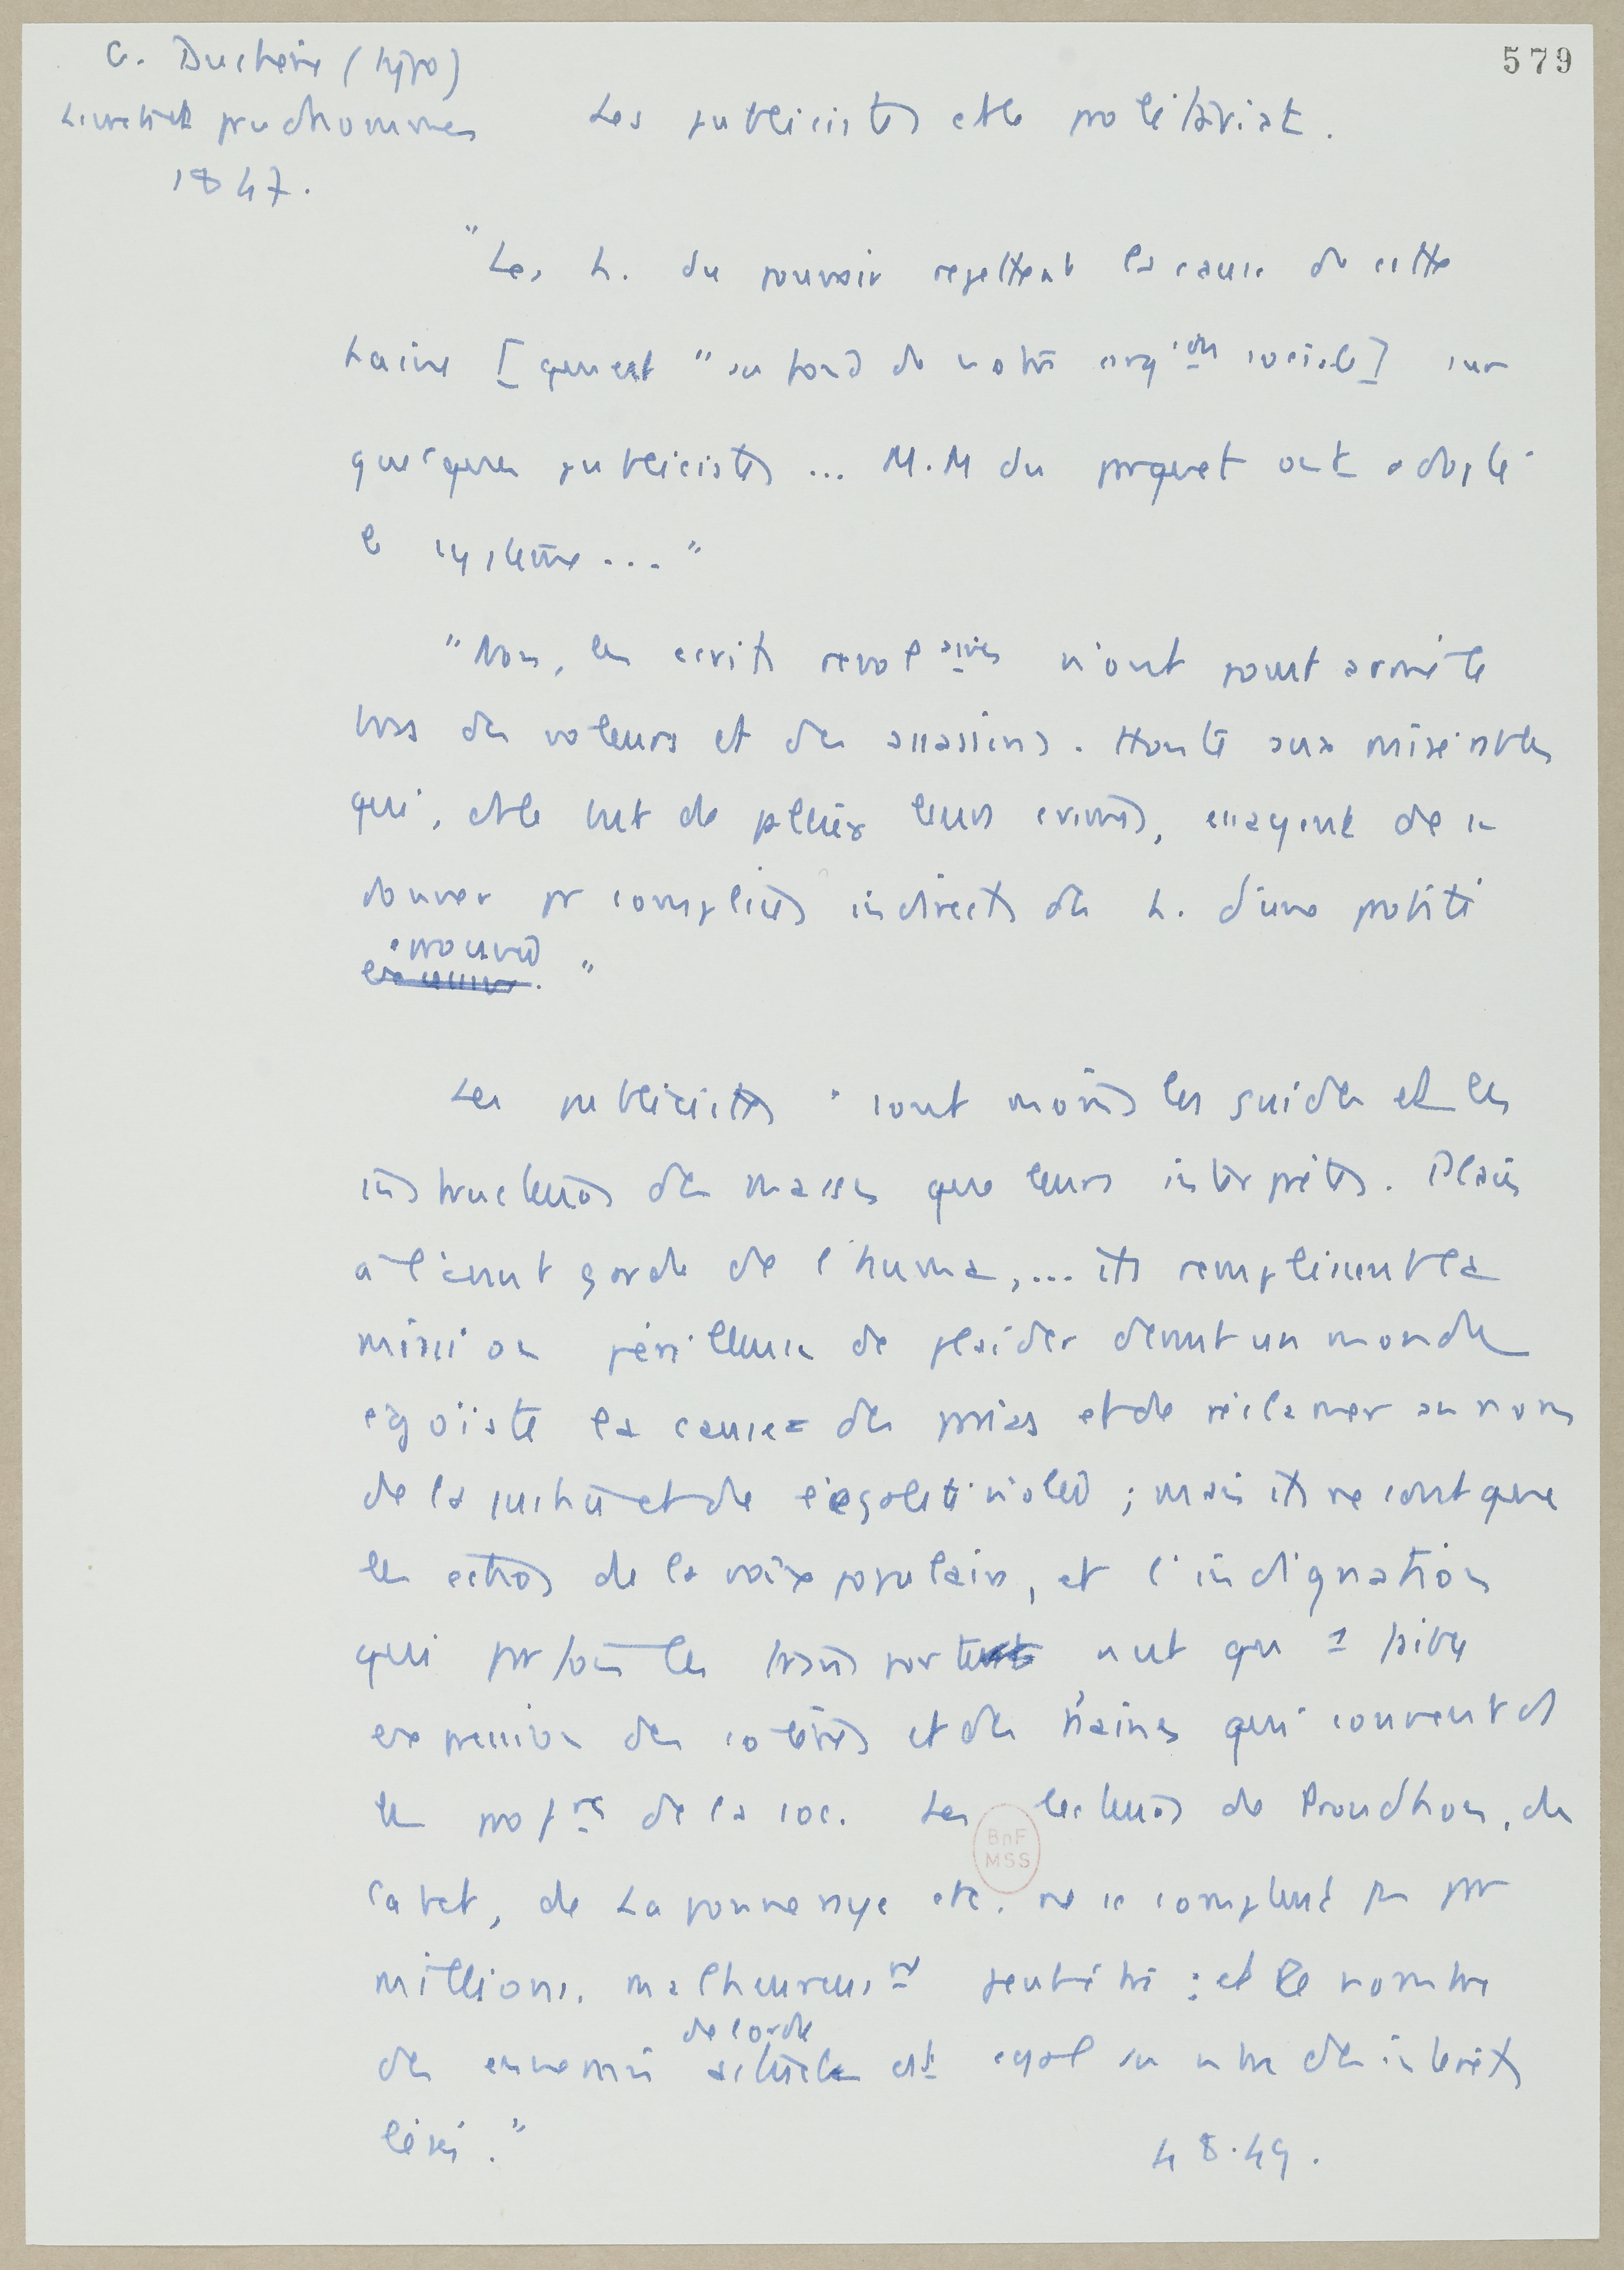 579
G. Duchêne (typo)
Livrets et prudhommes
1847.
Les publicistes et le prolétariat.
"Les h. du pouvoir rejettent la cause de cette
haine [qui est "au fond de notre org^ion sociale] sur
quelques publicistes ... M.M du parquet ont adopté
le système ..."
"Non, les écrits revol^aires n'ont point armé le
bras des voleurs et des assassins. Honte aux misérables
qui, ds le but de pallier leurs crimes, essayent de se
donner pr complices indirects des h. d'une probité
éprouvée
."
Les publicistes " sont moins les guides et les
instructeurs des masses que leurs interprètes. Placés
à l'avant garde de l'huma, ... ils remplissent la
mission périlleuse de plaider devant un monde
égoïste la cause des parias et de réclamer au nom
de la justice et de l'égalité violée ; mais ils ne sont que
les échos de la voix populaire, et l'indignation
qui parfois les transporte n'est qu'1 faible
expression des colères et des haines qui couvent ds
les prof^rs de la soc. Les lecteurs de Proudhon, de
Cabet, de Laponneraye etc. ne se comptent pas par
millions, malheureus^nt peut-être : et le nombre
de l'ordre
des ennemis actuel est égal au nbre des intérêts
lésés."
48.49.
BnF
MSS